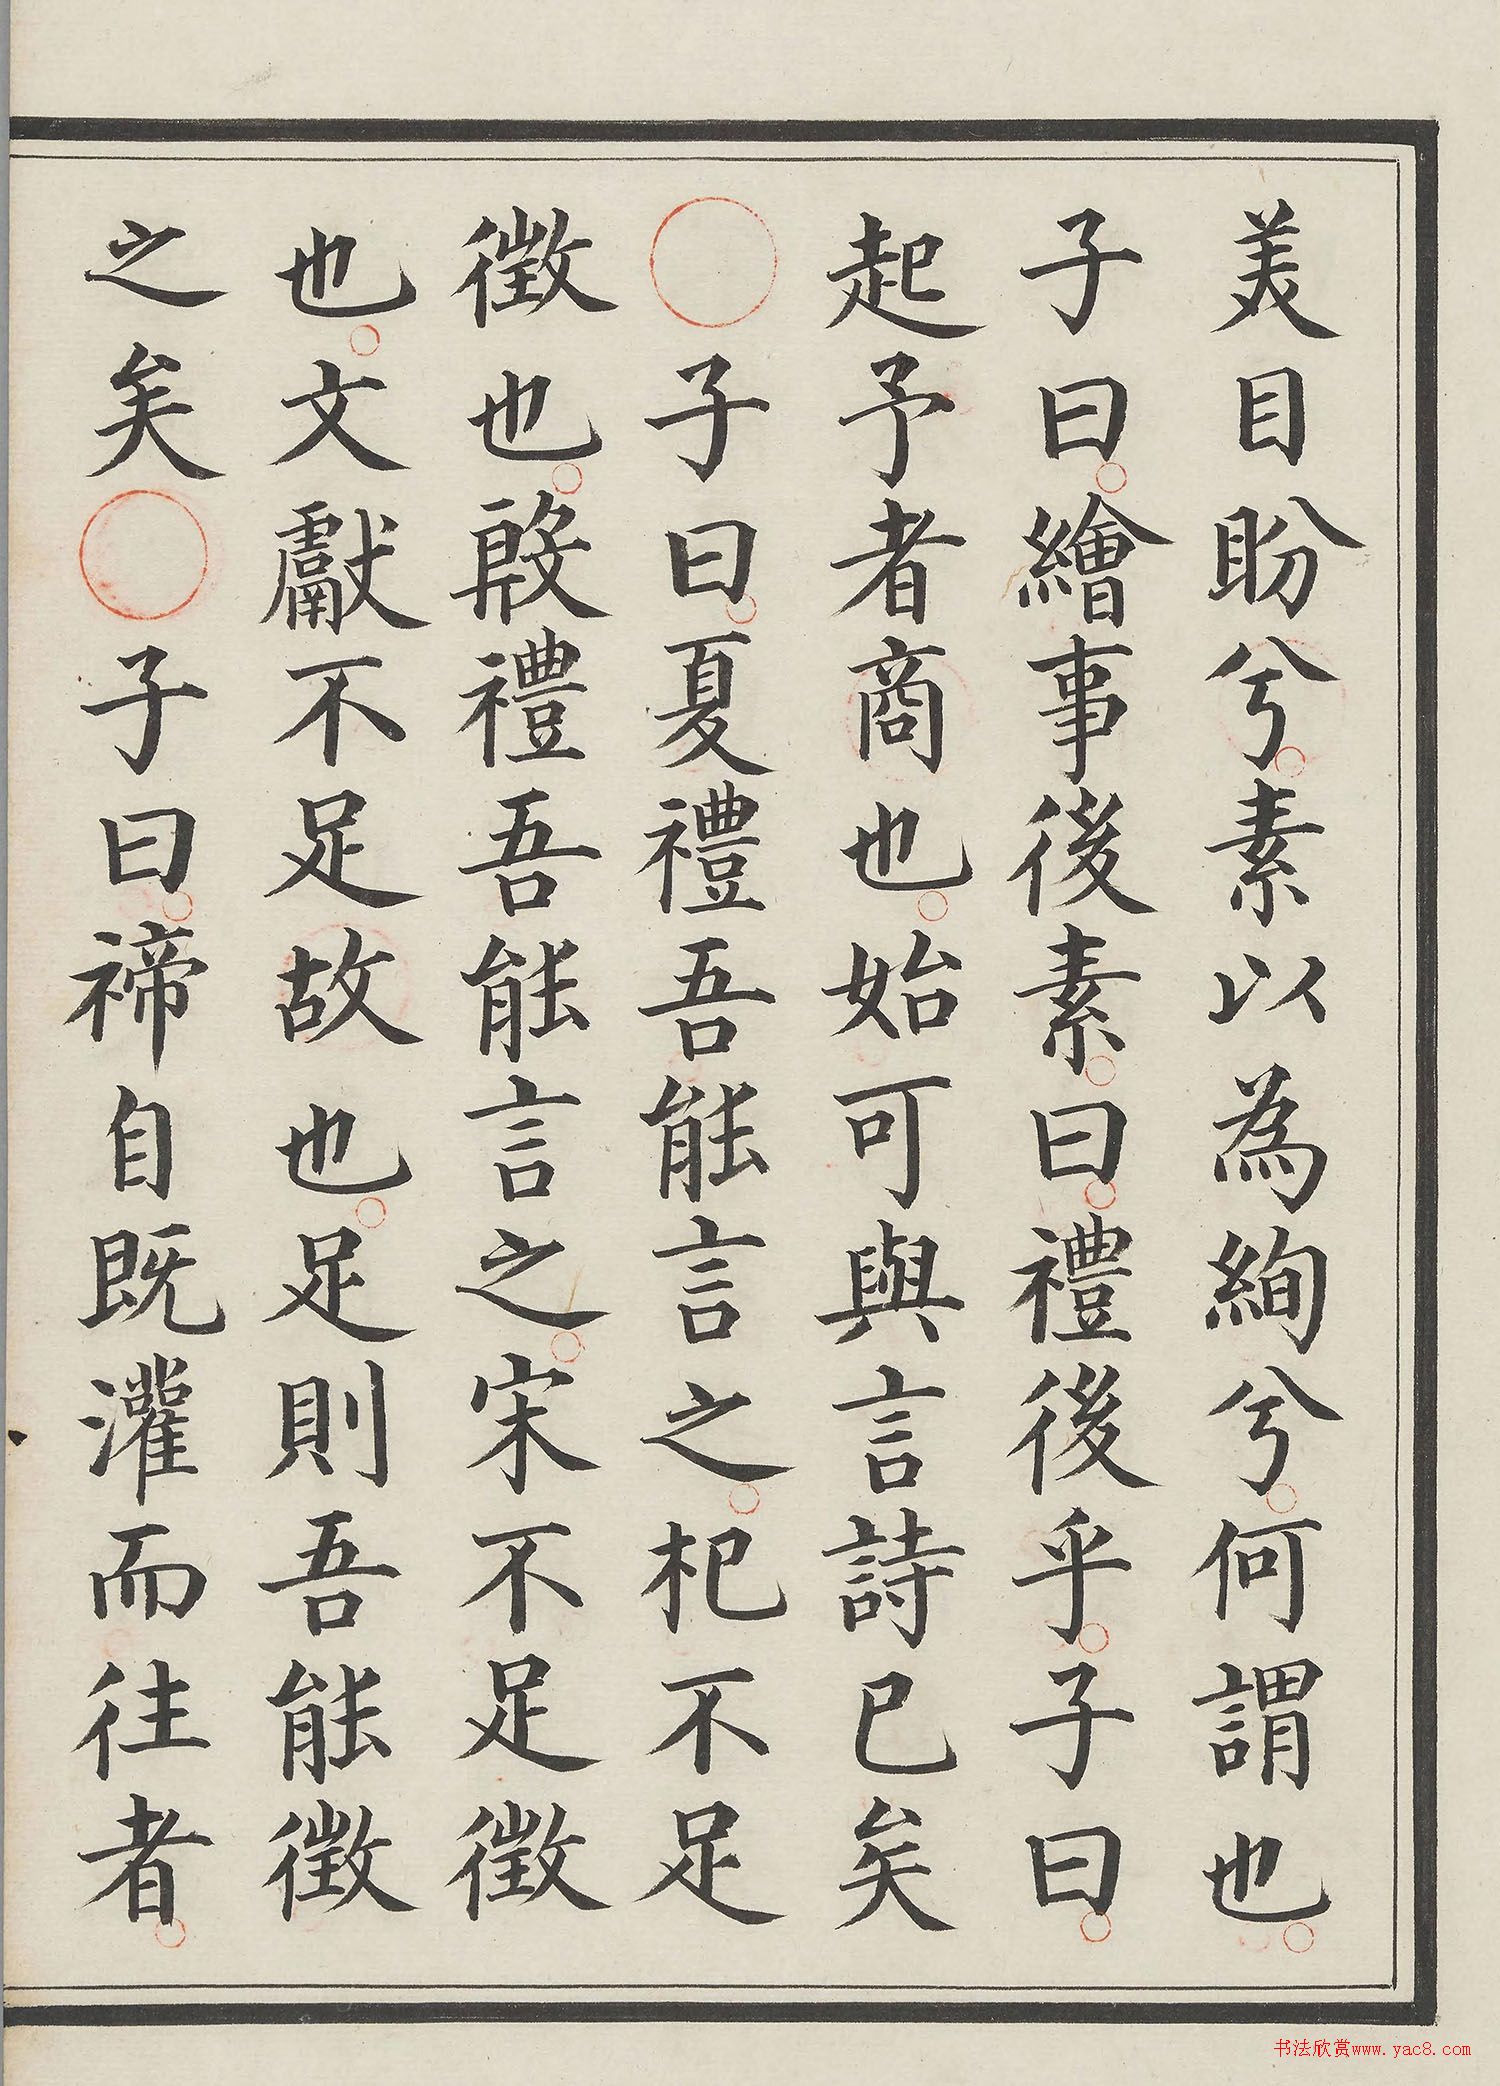 美目盼兮。素以為絢兮。何謂也。
子曰。繪事後素。曰。禮後乎。子曰。
起予者商也。始可與言詩已矣
○子曰。夏禮吾能言之。杞不足
徵也。殷禮吾能言之。宋不足徵
也。文獻不足故也。足則吾能徵
之矣○子曰。禘自既灌而往者。
书法欣赏www.yac8.com